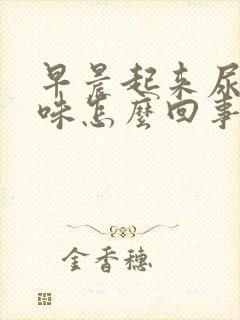 早晨起来尿
味怎麼回事
金香穗